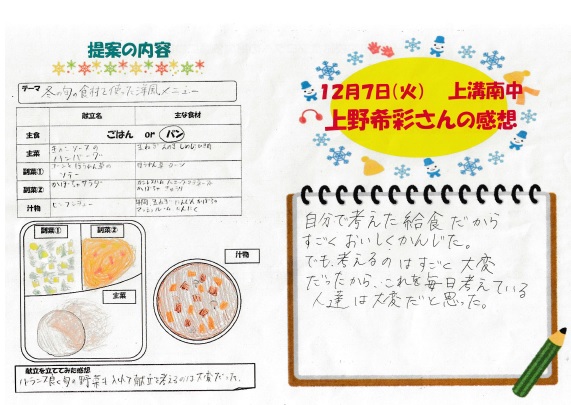 提案の内容
テーマ 冬の旬の食材を使った洋風メニュー
献立名 主な食材
主食 ごはん or パン
主菜 きのこソースのハンバーグ
副菜① コーンとほうれん草のソテー ほうれん草 コーン
副菜② かぼちゃサラダ
汁物 ビーフシチュー
副菜① 副菜②
汁物
主菜
献立を立ててみた感想
バランス良く旬の野菜も入れて献立を考えるのは大変だった。
12月7日(火) 上溝南中
上野希彩さんの感想
自分で考えた給食だから
すごくおいしくかんじた。
でも、考えるのはすごく大変
だったから、これを毎日考えている
人達は大変だと思った。